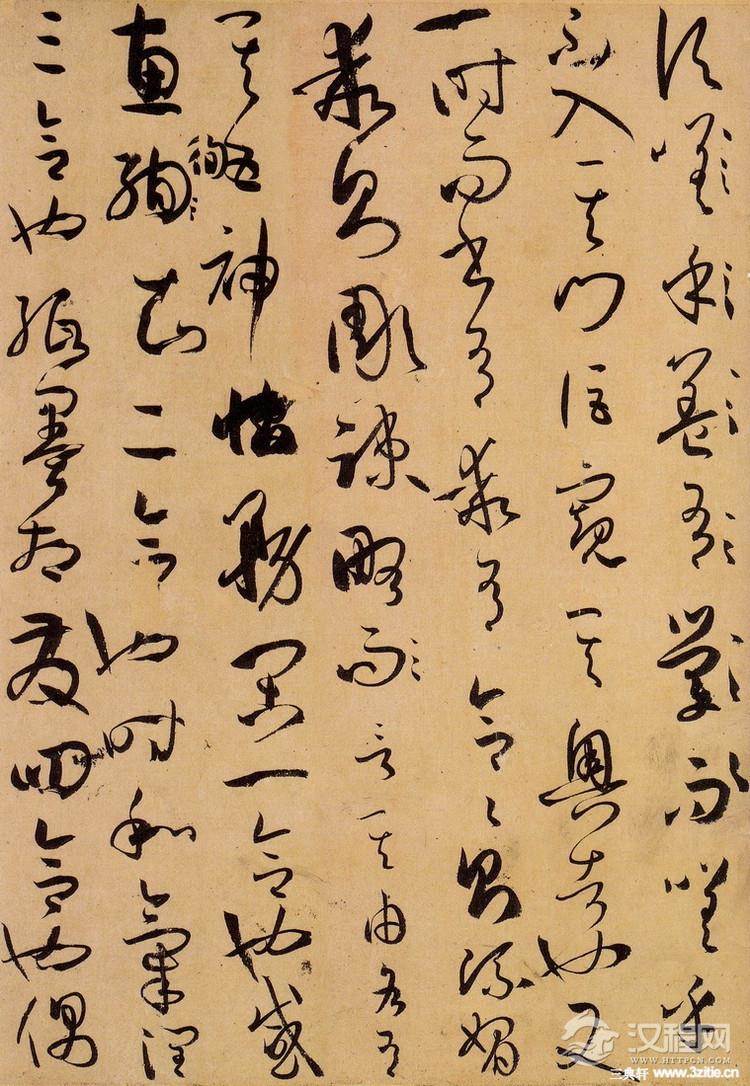 頃嗟乎
不入其門詎窺其奧者也又
一時而書有乖有合合則流媚
乖則彫疎略而言其由各有
其五神怡務閑一合也感
惠徇知二合也時和氣潤
三合也紙墨相發四合也偶
汉程网
WWW.HTTPCN.COM
三典轩 www.3zitie.cn